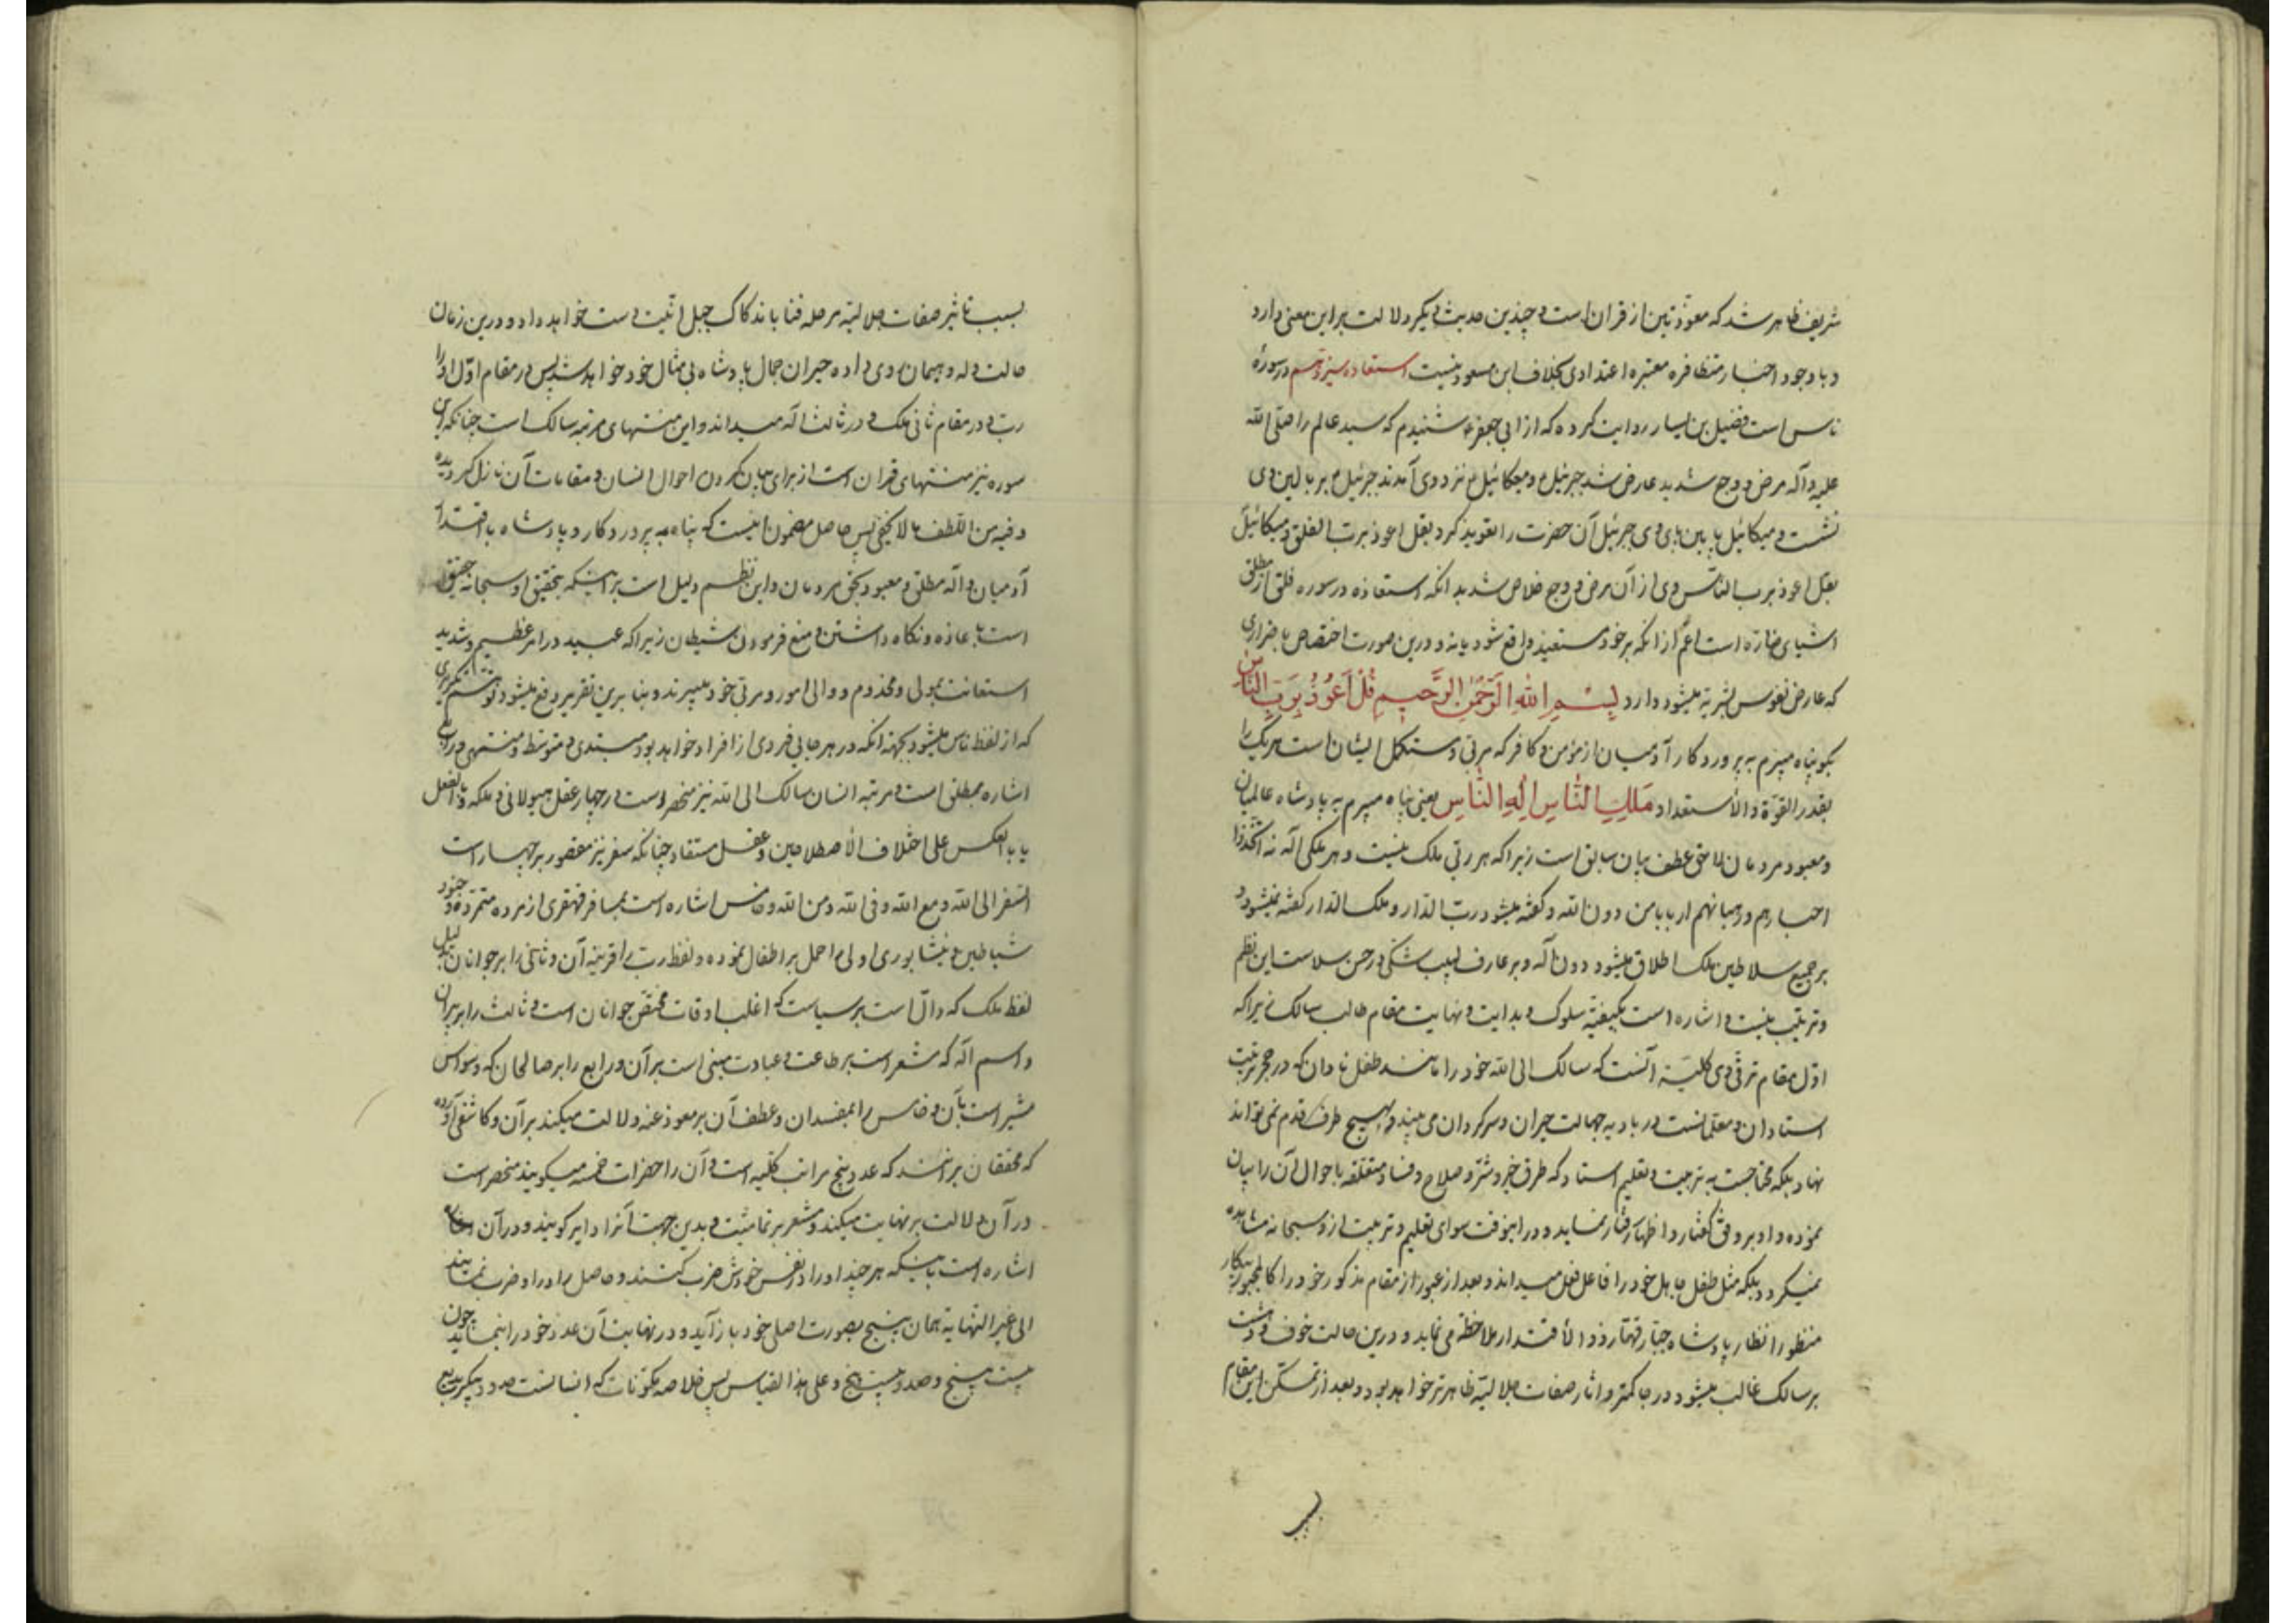 شریف ظاهر شد که معوذتین از قرانست و چندین حدیث دیکر دلالت براین معنی دارد
و با وجود اخبار متظافره معتبره اعتدادی بخلاف ابن مسعود نیست استعاذه سیزدهم در سورۀ
ناس است فضیل بن یسار روایت کرده که از ابی جعفر ع شنیدم که سید عالم را صلی الله
علیه و آله مرض و وجع شدید عارض شد جبرئیل و میکائیل نزد وی آمدند جبرئیل بر بالین وی
نشست و میکائیل پایین پای وی جبرئیل آن حضرت را تعویذ کرد بقل اعوذ برب الفلق و میکائیل
بقل اعوذ برب الناس وی از آن مرض و وجع خلاص شد بدانکه استعاذه در سوره فلق از مطلق
اشیای ضاره است اعم از انکه بر خود مستعیذ واقع شود یا نه و درین صورت اختصاص باضراری
که عارض نفوس بشریه میشود دارد بِسْمِ اللهِ الرَّحْمٰنِ الرَّحِيمِ قُلْ اَعُوذُ بِرَبِّ النَّاسِ
بکو پناه میبرم به پروردکار آدمیان از مؤمن و کافر که مربی و مستکمل ایشان است هریک را
بقدر القوة والاستعداد مَلِكِ النَّاسِ اِلٰهِ النَّاسِ یعنی پناه میبرم به پادشاه عالمیان
و معبود مردمان لاحق عطف بیان سابق است زیرا که هر ربی ملک نیست و هر ملکی اله نه اتخذوا
احبارهم و رهبانهم اربابا من دون الله و کفته میشود رب الدار و ملک الدار کفته نمیشود و
بر جمیع سلاطین ملک اطلاق میشود دون اله و بر عارف لبیب شکی در حسن سلاست این نظم
و ترتیب نیست و اشاره است بکیفیة سلوک و بدایت و نهایت مقام طالب سالک زیرا که
اول مقام ترقی وی کلیة آنست که سالک الی الله خود را مانند طفل نادان که در حجر تربیت
استادان و معلمانست در بادیه جهالت حیران و سرکردان می بیند و بهیچ طرف قدم نمی تواند
نهاد بلکه محتاجست به تربیت و تعلیم استاد که طرق خیر و شر و صلاح و فساد متعلقه باحوال آن را بیان
نموده و او بر وفق کفتار و اظهار رفتار نماید و در اینوقت سوای تعلیم و تربیت از و سبحانه مشاهده
نمیکردد بلکه مثل طفل جاهل خود را فاعل فعل میداند و بعد از عبور از مقام مذکور خود را کالمجبور بیکار
منظور انظار پادشاه جبار قهار ذو الاقتدار ملاحظه می نماید و درین حالت خوف و دهشت
بر سالک غالب میشود و رجا کمتر و اثار صفات جلالیه ظاهرتر خواهد بود و بعد از تمکن این مقام
بسبب تاثیر صفات جلالیه مرحله فنا باندکاک جبل انیت دست خواهد داد و درین زمان
حالت وله و هیمان روی داده حیران جمال پادشاه بی مثال خود خواهد شد پس در مقام اول او را
رب و در مقام ثانی ملک و در ثالث اله میداند و این منتهای مرتبه سالک است چنانکه این
سوره نیز منتهای قران است از برای بیان کردن احوال انسان و مقامات آن نازل کردیده
و فیه من اللطف ما لا یخفی پس حاصل مضمون اینست که پناه به پروردکار و پادشاه با اقتدار
آدمیان و اله مطلق و معبود بحق مردمان و این نظم دلیل است براینکه بتحقیق او سبحانه حقیق
است باعاذه و نکاه داشتن و منع فرمودن شیطان زیرا که عبید در امر عظیم و شدید
استعانت بمولی و مخدوم و والی امور و مربی خود میبرند و بنا برین تقریر دفع میشود توهم تکریری
که از لفظ ناس میشود بجهة انکه در هر جایی فردی از افراد خواهد بود مبتدی و متوسط و منتهی و رابع
اشاره بمطلق است و مرتبه انسان سالک الی الله نیز منحصر است در چهار عقل هیولانی و ملکه و بالفعل
یا بالعکس علی اختلاف الاصطلاحین و عقل مستفاد چنانکه سفر نیز مقصور بر چهار است
السفر الی الله و مع الله و فی الله و من الله و خامس اشاره است بمسافر قهقری از مرده متمرده و جنود
شیاطین و نیشابوری اولی را حمل بر اطفال نموده و لفظ رب را قرینه آن و ثانی را بر جوانان بدلیل
لفظ ملک که دال است بر سیاست که اغلب اوقات مختص جوانان است و ثالث را بر پیران
و اسم اله که مشعر است بر طاعت و عبادت مبنی است بر آن و رابع را بر صالحان که وسواس
مشیر است بآن و خامس را بمفسدان و عطف آن بر معوذ عنه دلالت میکند بر آن و کاشفی آورده
که محققان برانند که عدد پنج مراتب کلیه است و آن را حضرات خمسه میکویند منحصر است
در آن دلالت بر نهایت میکند و مشعر بر تمامیت و بدین جهت آنرا دایر کویند و در آن
اشاره است باینکه هر چند او را در نفس خودش ضرب کنند و حاصل را در او ضرب نمایند
الی غیر النهایة همان پنج بصورت اصلی خود باز آید و در نهایت آن عدد خود را بنماید چون
بیست و پنج و صد و بیست و پنج و علی هذا القیاس پس خلاصه مکونات که انسانست